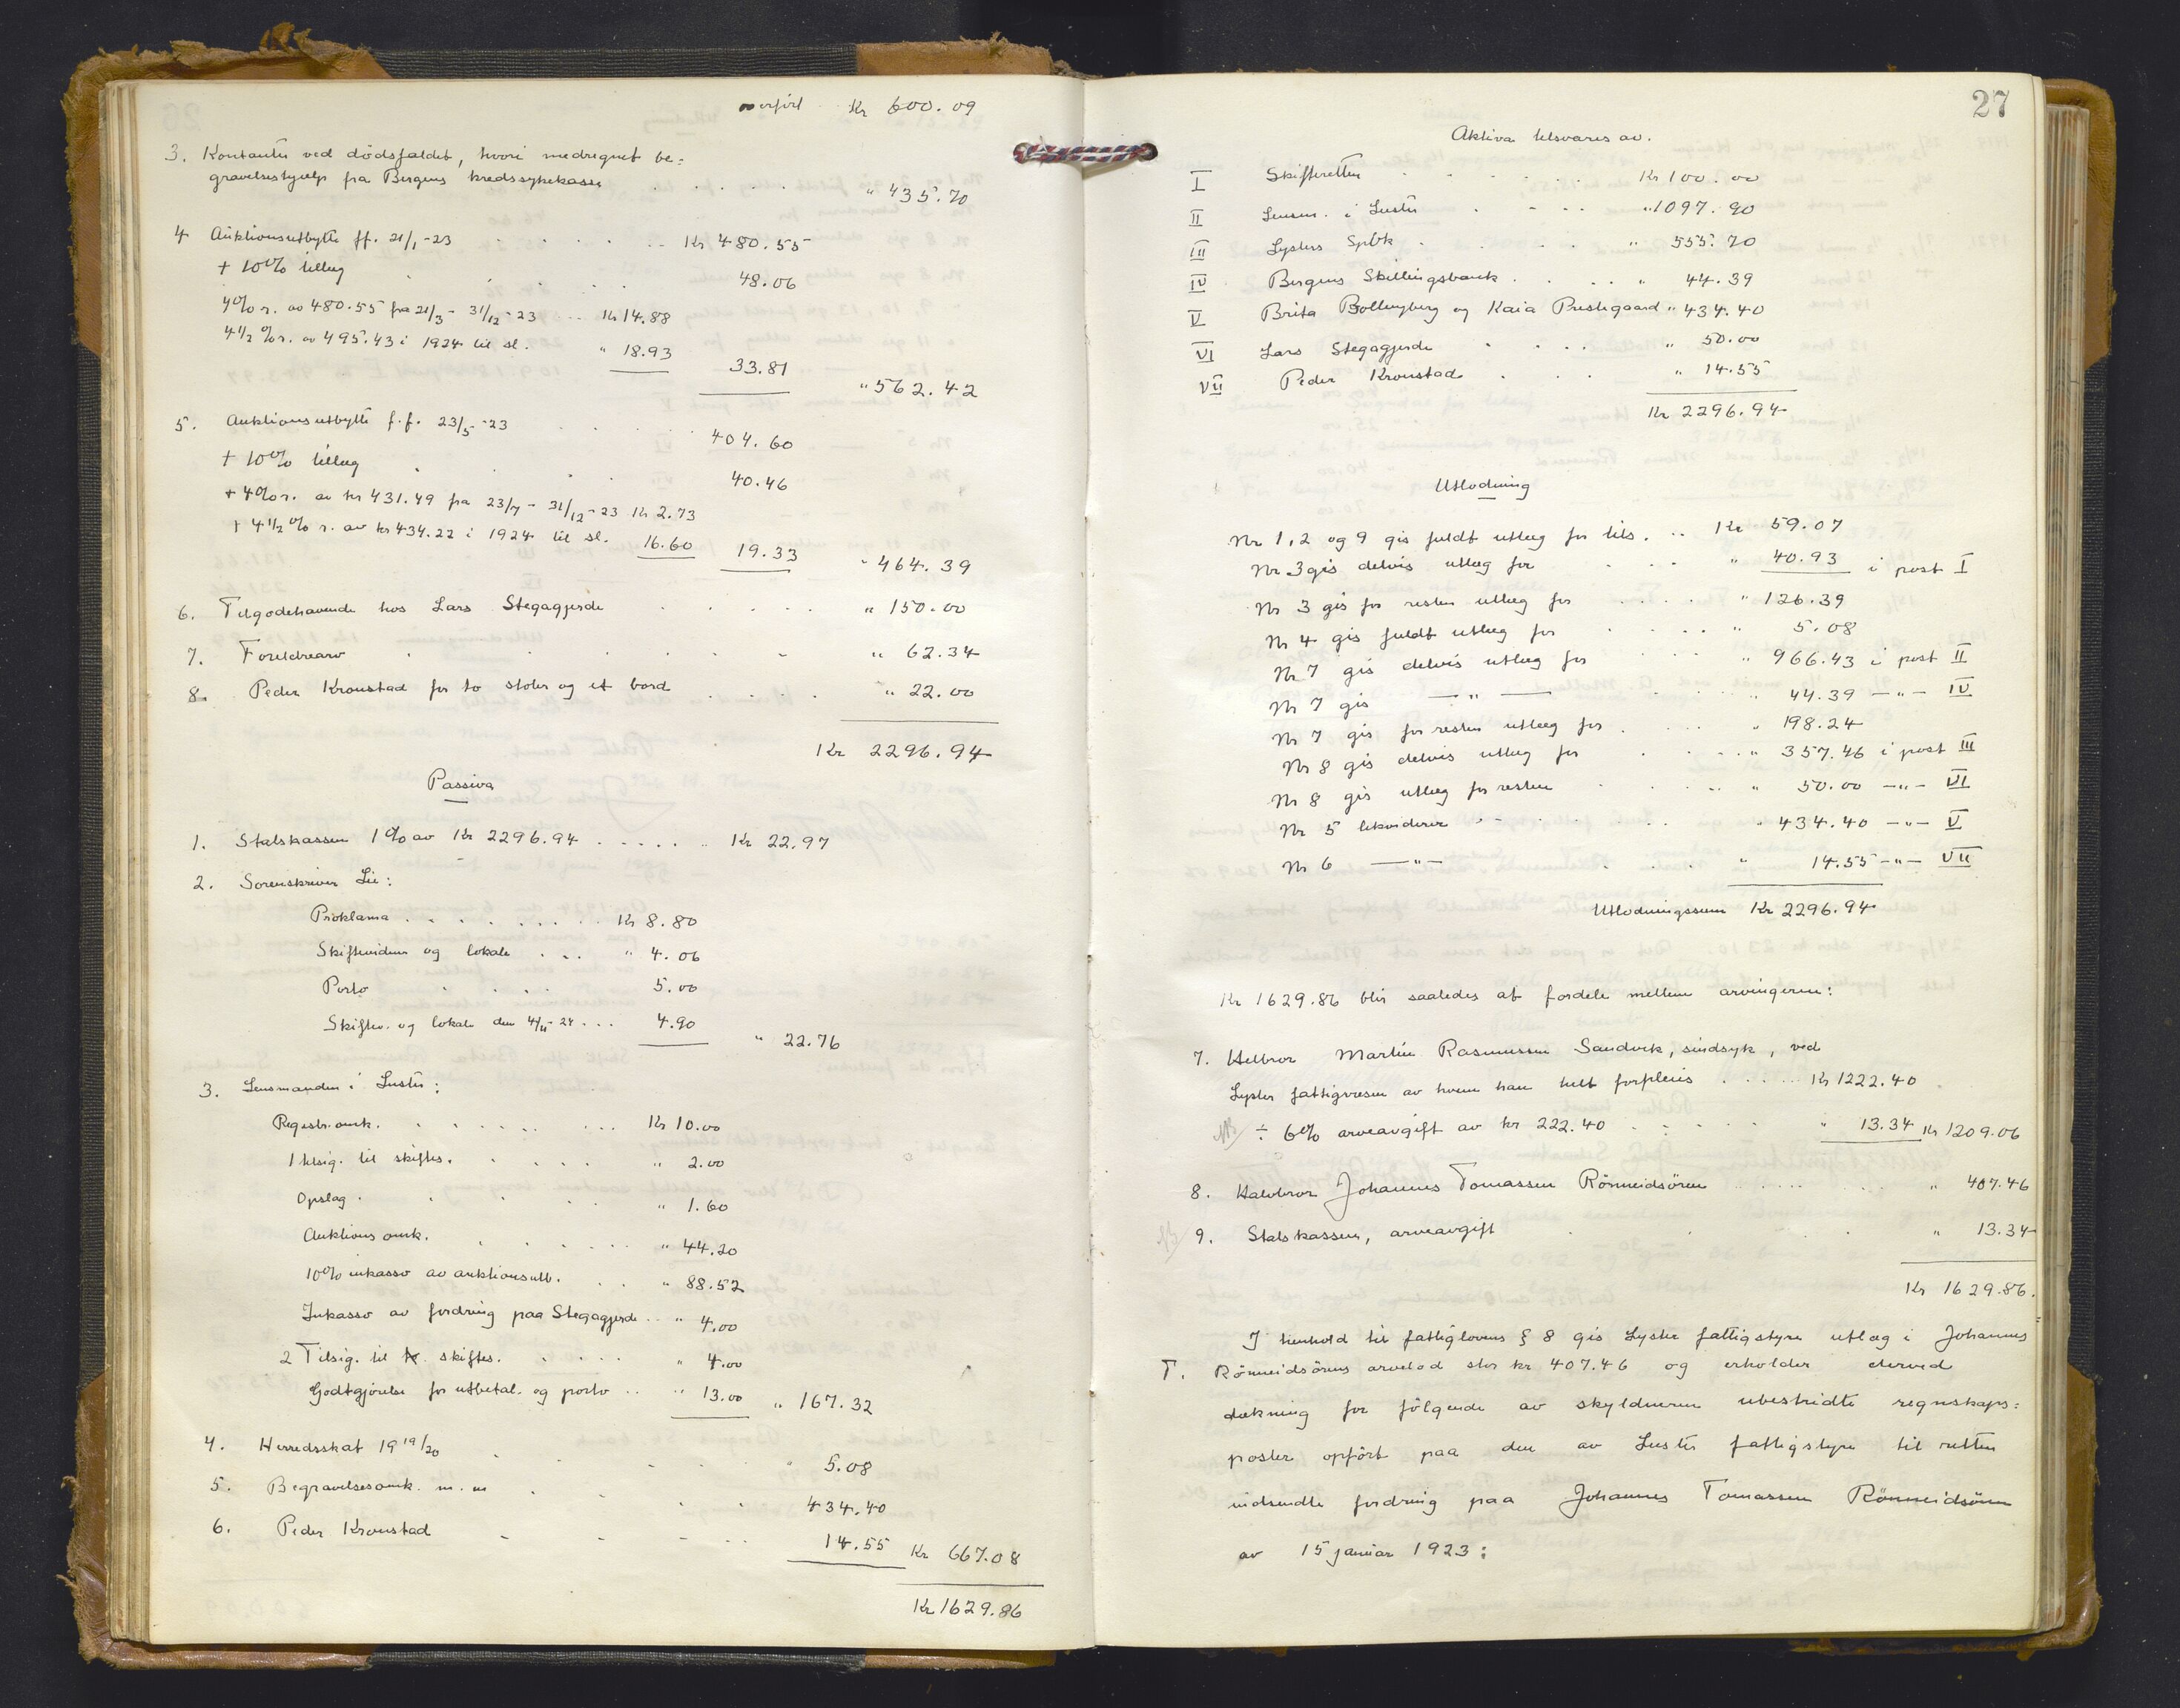 overført Kr 600.09
3. Kontanter ved dødsfaldet, hvori medregnet be=
gravelseshjælp fra Bergens kredssykekasse . . . . . " 435.70
4 Auktionsutbytte ff. 21/1 - 23 . . . . . Kr 480.55
+ 10% tillæg . . . . 48.06
4% r. av 480.55 fra 21/3 - 31/12 - 23 . . . Kr 14.88
4 1/2 % r. av 495.43 i 1924 til sl. " 18.93 33.81 " 562.42
5. Auktionsutbytte f.f. 23/5 - 23 . . . . . 404.60
+ 10% tillæg . . . 40.46
+ 4% r. av kr 431.49 fra 23/7 - 31/12 - 23 Kr 2.73
+ 4 1/2 % r. av kr 434.22 i 1924 til sl. 16.60 19.33 " 464.39
6. Tilgodehavende hos Lars Stegagjerde . . . . . " 150.00
7. Foreldrearv . . . . . . " 62.34
8. Peder Kronstad for to stoler og et bord . . . . " 22.00
Kr 2296.94
Passiva
1. Statskassen 1% av Kr 2296.94 . . . . . . Kr 22.97
2. Sorenskriver Lie:
Proklama . . . . . . . . . Kr 8.80
Skiftevidner og lokale . . . " 4.06
Porto . . . . 5.00
Skiftev. og lokale den 4/11 - 24 . . . 4.90 " 22.76
3. Lensmanden i Luster:
Registr. omk. . . . . . . . . Kr 10.00
1 tilsig. til skiftes. . . . . " 2.00
Opslag . . . . . " 1.60
Auktions omk. . . . . . . " 44.20
10% inkasso av auktionsutb. . . . " 88.52
Inkasso av fordring paa Stegagjerde . . " 4.00
2 Tilsig. til skiftes. . . . . " 4.00
Godtgjørelse for utbetal. og porto . . " 13.00 " 167.32
4. Herredsskat 19 19/20 . . . . " 5.08
5. Begravelsesomk. m. m . . . . 434.40
6. Peder Kronstad . . . . . 14.55 Kr 667.08
Kr 1629.86
27
Aktiva tilsvares av.
I Skifteretten . . . . . . Kr 100.00
II Lensm. i Luster . . . . " 1097.90
III Lysters Spbk . . . . " 555.70
IV Bergens Skillingsbank . . . . " 44.39
V Brita Bollingberg og Kaia Prestegaard " 434.40
VI Lars Stegagjerde . . . . " 50.00
VII Peder Kronstad . . . " 14.55
Kr 2296.94
Utlodning
Nr 1, 2 og 9 gis fuldt utlæg for tils. . . Kr 59.07
Nr 3 gis delvis utlæg for . . . " 40.93 i post I
Nr 3 gis for resten utlæg for . . . . " 126.39
Nr 4 gis fuldt utlæg for . . . . " 5.08
Nr 7 gis delvis utlæg for . . . " 966.43 i post II
Nr 7 gis — " — . . . " 44.39 — " — IV
Nr 7 gis for resten utlæg for . . . . " 198.24
Nr 8 gis delvis utlæg for . . . . " 357.46 i post III
Nr 8 gis utlæg for resten . . . . " 50.00 — " — VI
Nr 5 likviderer . . . . . " 434.40 — " — V
Nr 6 — " — . . . " 14.55 — " — VII
Utlodningssum Kr 2296.94
Kr 1629.86 blir saaledes at fordele mellem arvingerne:
7. Helbror Martin Rasmussen Sandvik, sindsyk, ved
Lyster fattigvæsen av hvem han helt forpleies . . . . . Kr 1222.40
NB ÷ 6% arveavgift av kr 222.40 . . . . . " 13.34 Kr 1209.06
8. Halvbror Johannes Tomassen Rønneidsøren . . . . . " 407.46
NB 9. Statskassen, arveavgift . . . . " 13.34
Kr 1629.86.
I henhold til fattiglovens § 8 gis Lyster fattigstyre utlæg i Johannes
T. Rønneidsørens arvelod stor kr 407.46 og erholder derved
dækning for følgende av skyldneren ubestridte regnskaps=
poster opført paa den av Luster fattigstyre til retten
indsendte fordring paa Johannes Tomassen Rønneidsøren
av 15 januar 1923: